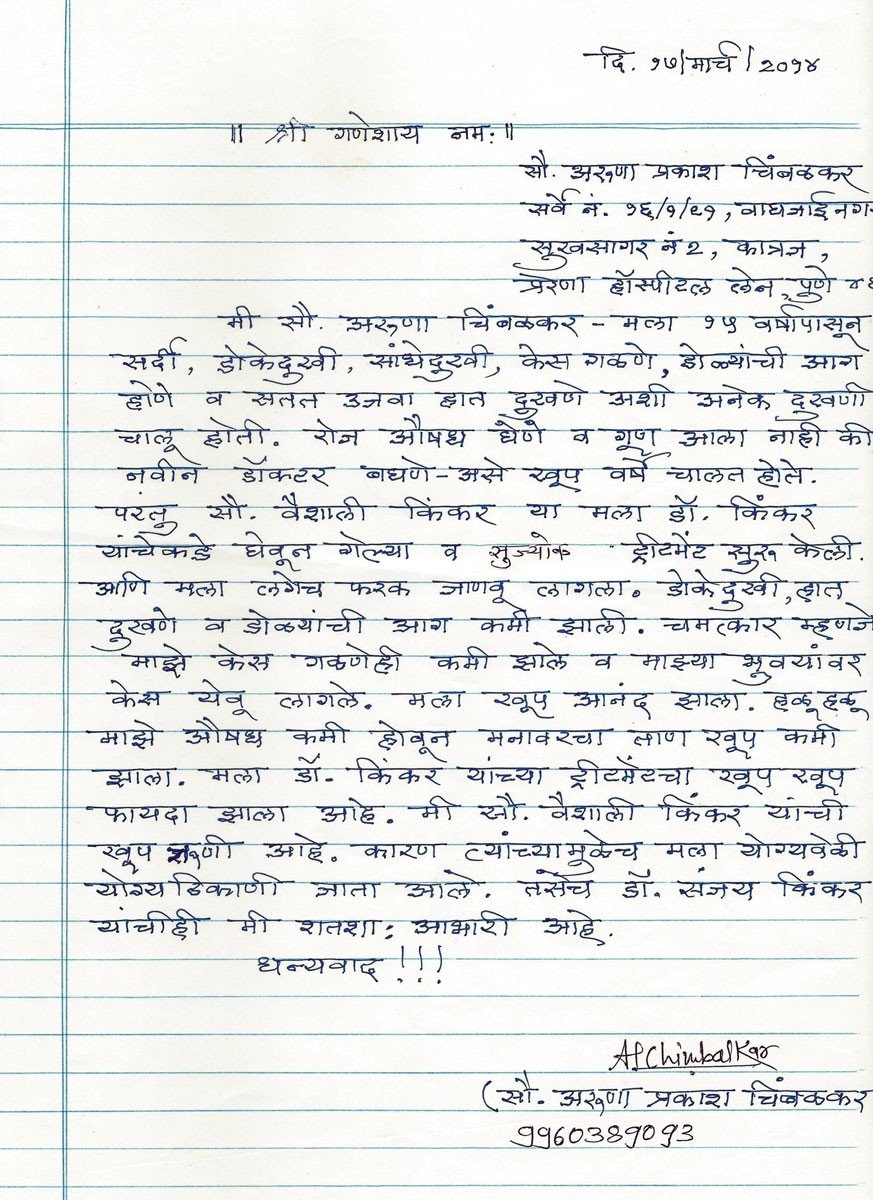 दि. १७/मार्च/२०१४
॥ श्री गणेशाय नमः॥
सौ. अरुणा प्रकाश चिंबळकर
सर्वे नं. १६/१/८१, वाघजाईनग
सूखसागर नं २, कात्रज,
प्रेरणा हॉस्पीटल लेन, पुणे ४६
मी सौ. अरुणा चिंबळकर - मला १५ वर्षापासून
सर्दी, डोकेदुखी, सांधेदुखी, केस गळणे, डोळ्यांची आग
होणे व सतत उजवा हात दुखणे अशी अनेक दुखणी
चालू होती. रोज औषध घेणे व गूण आला नाही की
नवीन डॉक्टर बघणे - असे खूप वर्षे चालत होते.
परंतु सौ. वैशाली किंकर या मला डॉ. किंकर
यांचेकडे घेवून गेल्या व सुज्योक ट्रीटमेंट सुरु केली.
आणि मला लगेच फरक जाणवू लागला. डोकेदुखी, हात
दुखणे व डोळ्यांची आग कमी झाली. चमत्कार म्हणजे
माझे केस गळणेही कमी झाले व माझ्या भुवयांवर
केस येवू लागले. मला खूप आनंद झाला. हळू हळू
माझे औषध कमी होवून मनावरचा ताण खूप कमी
झाला. मला डॉ. किंकर यांच्या ट्रीटमेंटचा खूप खूप
फायदा झाला आहे. मी सौ. वैशाली किंकर यांची
खूप ऋणी आहे. कारण त्यांच्यामुळेच मला योग्यवेळी
योग्यठिकाणी जाता आले. तसेच डॉ. संजय किंकर
यांचीही मी शतशाः आभारी आहे.
धन्यवाद !!!
APChimbalkar
(सौ. अरुणा प्रकाश चिंबळकर
9960389093